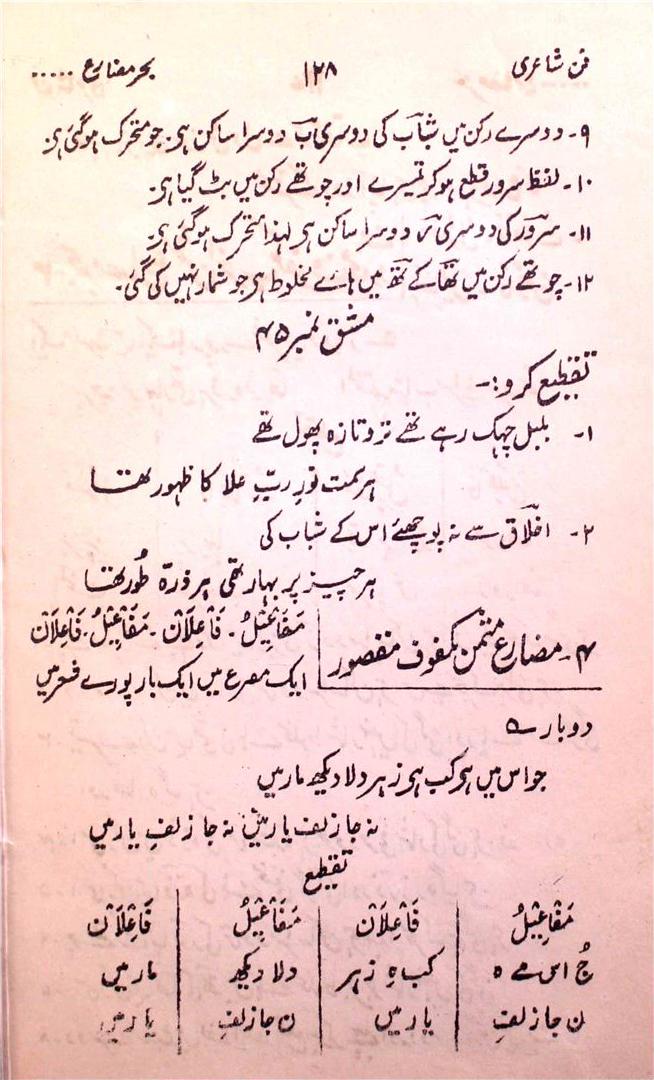 فن شاعری ۱۲۸ بحر مضارع .....
۹- دوسرے رکن میں شباب کی دوسری ب دوسرا ساکن ہی۔ جو متحرک ہو گئی ہی۔
۱۰- لفظ سرور قطع ہو کر تیسرے اور چوتھے رکن میں بٹ گیا ہی۔
۱۱- سرور کی دوسری ر دوسرا ساکن ہی لہذا متحرک ہو گئی ہی۔
۱۲- چوتھے رکن میں تھا کے تھ میں ہائے مخلوط ہی جو شمار نہیں کی گئی۔
مشق نمبر ۴۵
تقطیع کرو:-
۱- بلبل چہک رہے تھے تر و تازہ پھول تھے
ہر سمت نورِ ربِّ علا کا ظہور تھا
۲- اخلاق سے نہ پوچھئے اس کے شباب کی
ہر چیز پر بہار تھی ہر ذرہ طُور تھا
۴- مضارع مثمن مکفوف مقصور
مَفَاعِیْلُ۔ فَاعِلَانْ۔ مَفَاعِیْلُ۔ فَاعِلَانْ
ایک مصرع میں ایک بار پورے شعر میں
دوبارے
جو اس میں ہی کب ہی زہر دلا دیکھ مار میں
نہ جا زلف یار میں نہ جا زلفِ یار میں
تقطیع
مَفَاعِیْلُ فَاعِلَانْ مَفَاعِیْلُ فَاعِلَانْ
جُ اس مے ہ کب ہِ زہر دلا دیکھ مار میں
ن جا زلفِ یار میں ن جا زلفِ یار میں